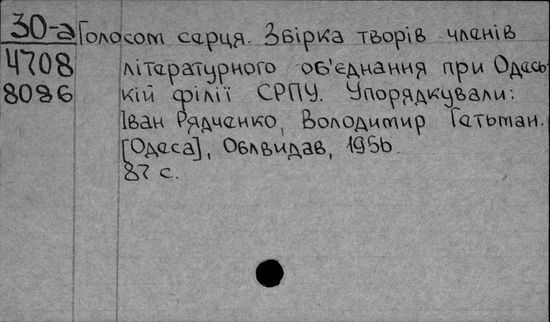 30-а Голосом серця. Збірка творів членів
4708 літературного об'єднання при Одесь-
8086 кій філії СРПУ. Упорядкували:
Іван Рядченко, Володимир Гетьман.
[Одеса], Облвидав, 1956.
87 с.